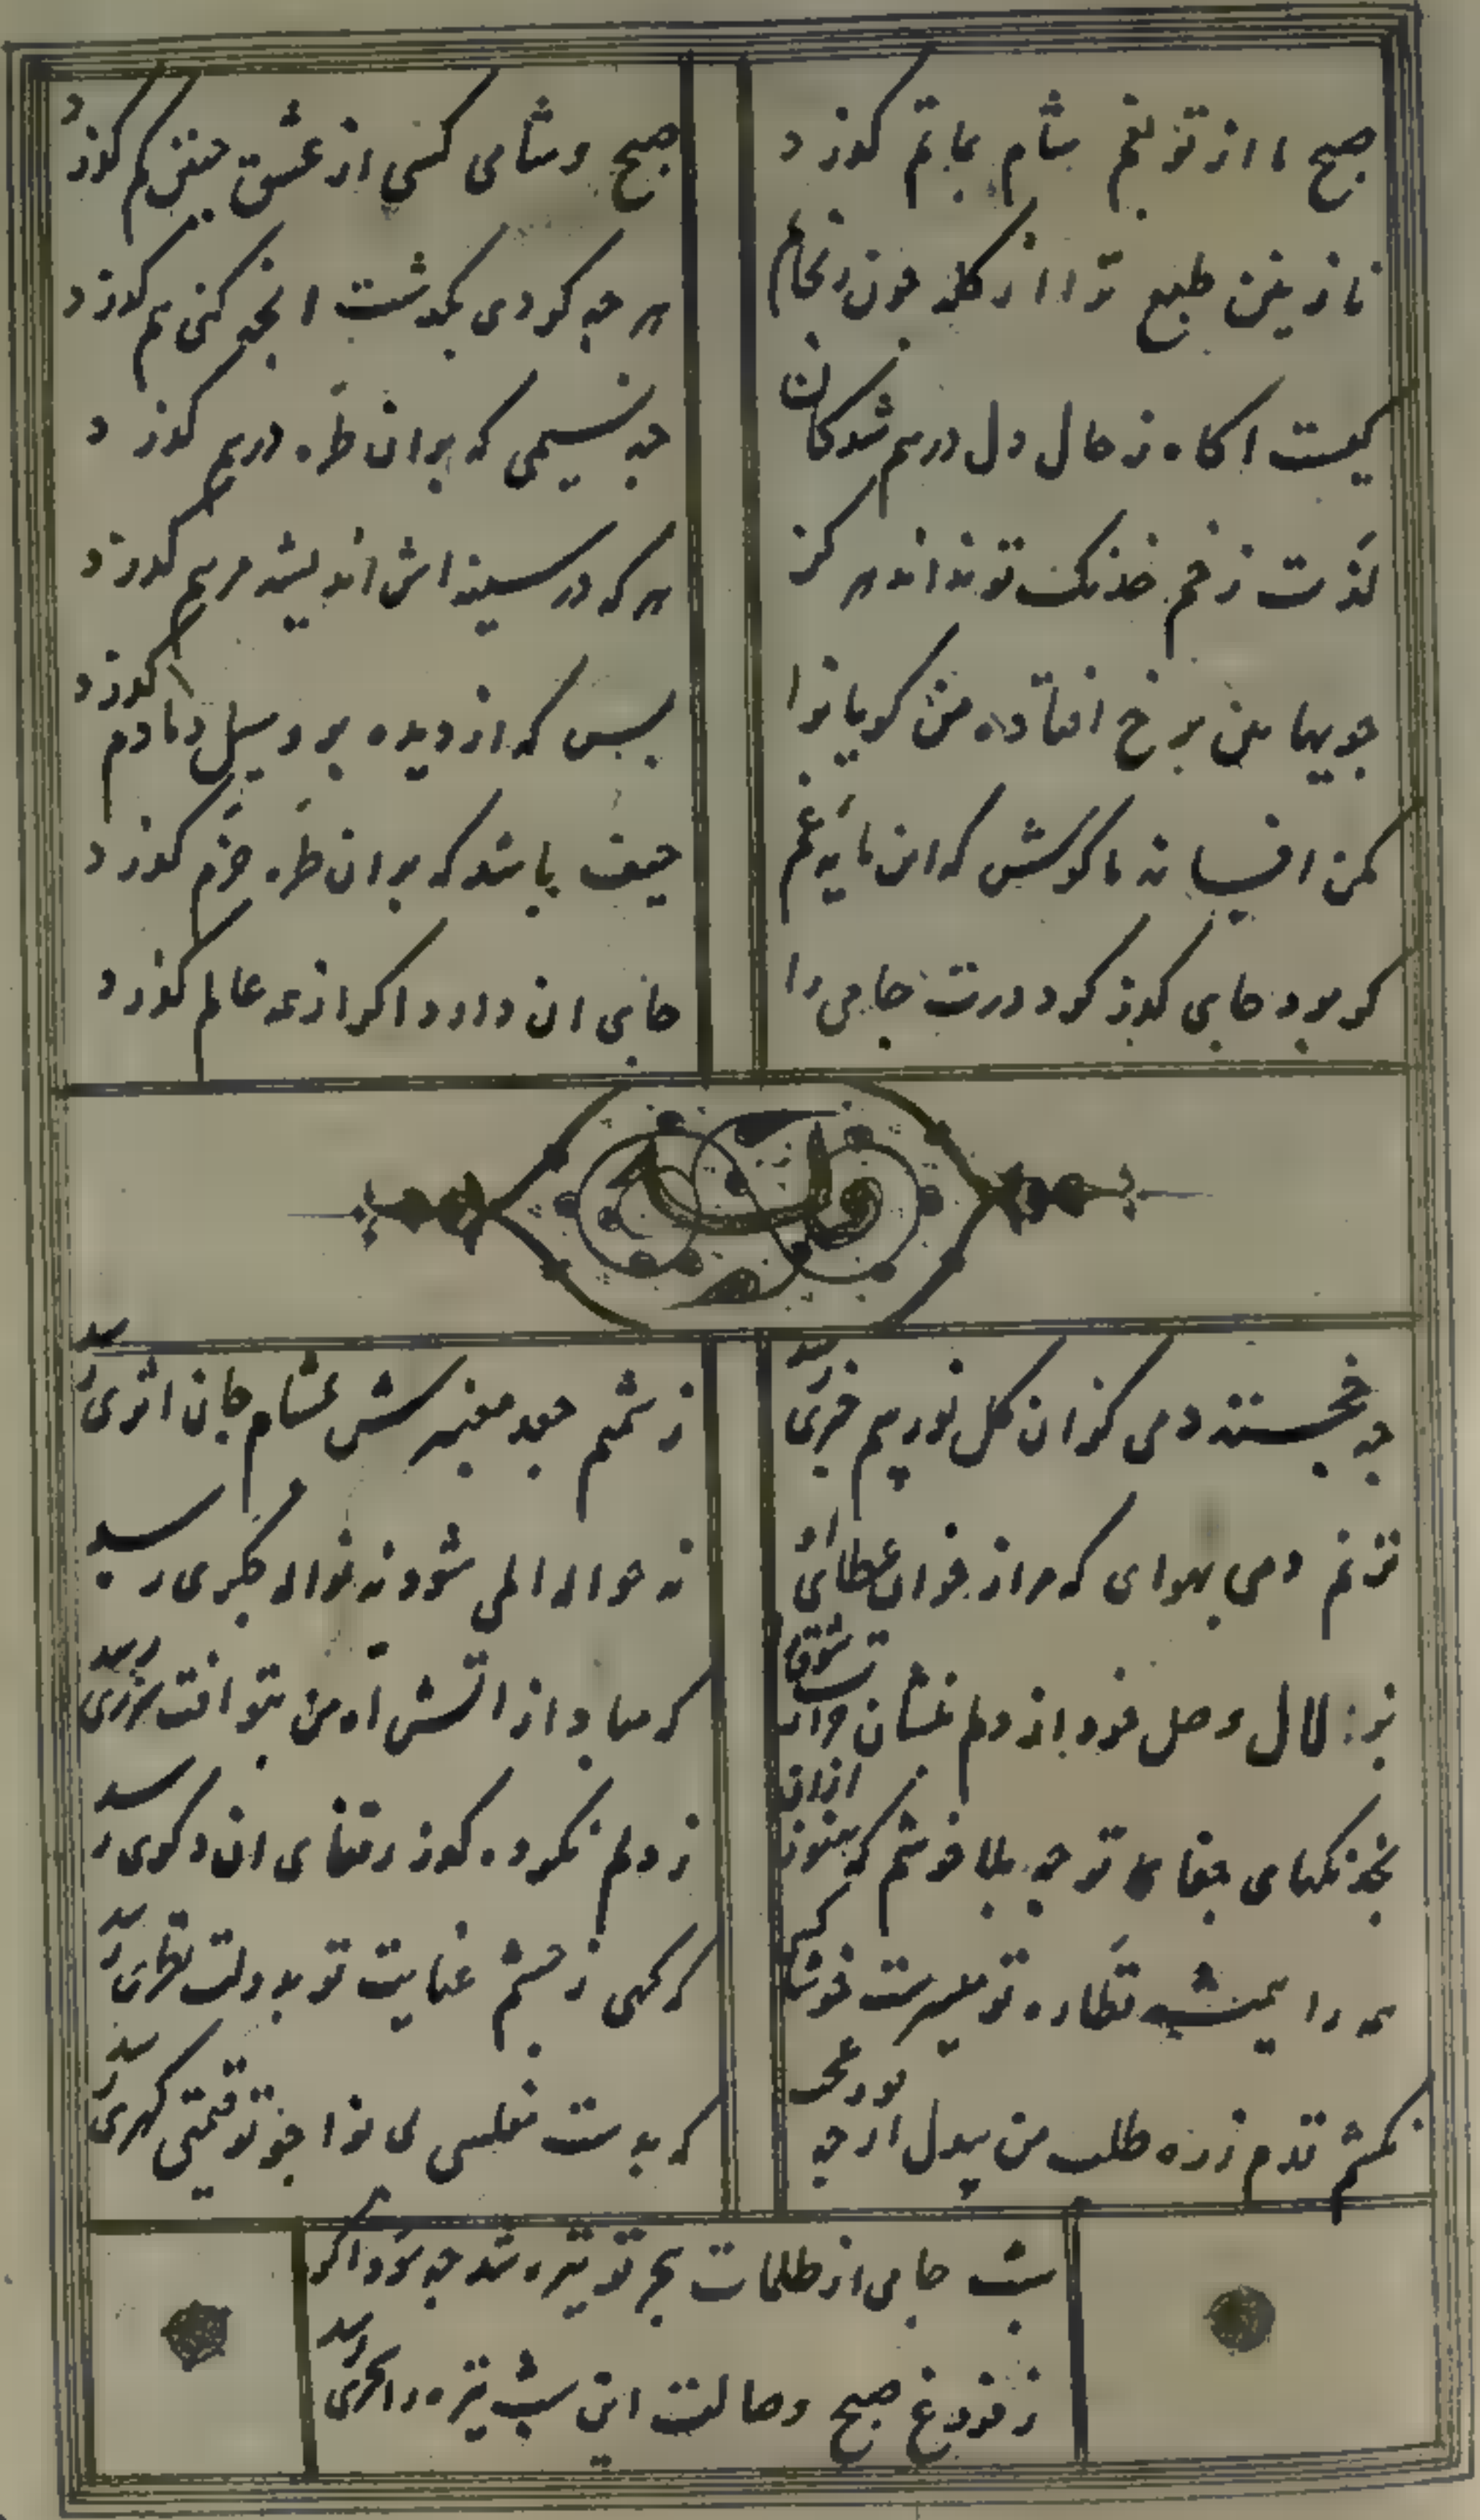 صبح ما از تو بغم شام بماتم کذرد
صبح و شام کسی از عشق چنین کم کذرد
نازنین طبع ترا از کله چون رنجانم
هر چه کردی بکذشت انچه کنی هم کذرد
کیست اکاه ز حال دل درهم شدکان
جز نسیمی که بران طره درهم کذرد
لذت زخم خدنک تو نداند هرکز
هر که در سینه اش اندیشه مرهم کذرد
جویها بین برخ افتاده من کویا
بس که از دیده برو سیل دمادم کذرد
مکن افسانه ما کوش که این مایه غم
حیف باشد که بران طره خرم کذرد
کر بود جای کذر کرد درت جامی را
جای ان دارد اکر از همه عالم کذرد
وله ایضا
چه خجسته دمی کز ان کل نورسم خبری رسد
ز شمیم جعد معنبرش بمشام جان اثری رسد
نزنم دمی بهوای که مرا ز خوان عطای او
نه حواله المی شود نه نواله جکری رسد
بزلال وصل خود از دلم بنشان حرارت شوق
که مباد از اتش آه من بتو افت شرری رسد
بخدنکهای جفای تو چه بلا خوشم که هنوز ازان
ز دلم نکرده کذر رقفای ان دکری رسد
همه را همیشه نظاره تو میسرست خوشا کسی
که کهی ز چشم عنایت تو بدولت نظری رسد
نکشم قدم ز ره طلب من بیدل ار چه بود عجب
که بدست مفلس بی نوا چو تو قیمتی کهری رسد
شب جامی از ظلمات هجر تو تیره شد چه شود اکر
ز فروغ صبح وصالت این شب تیره را سحری رسد